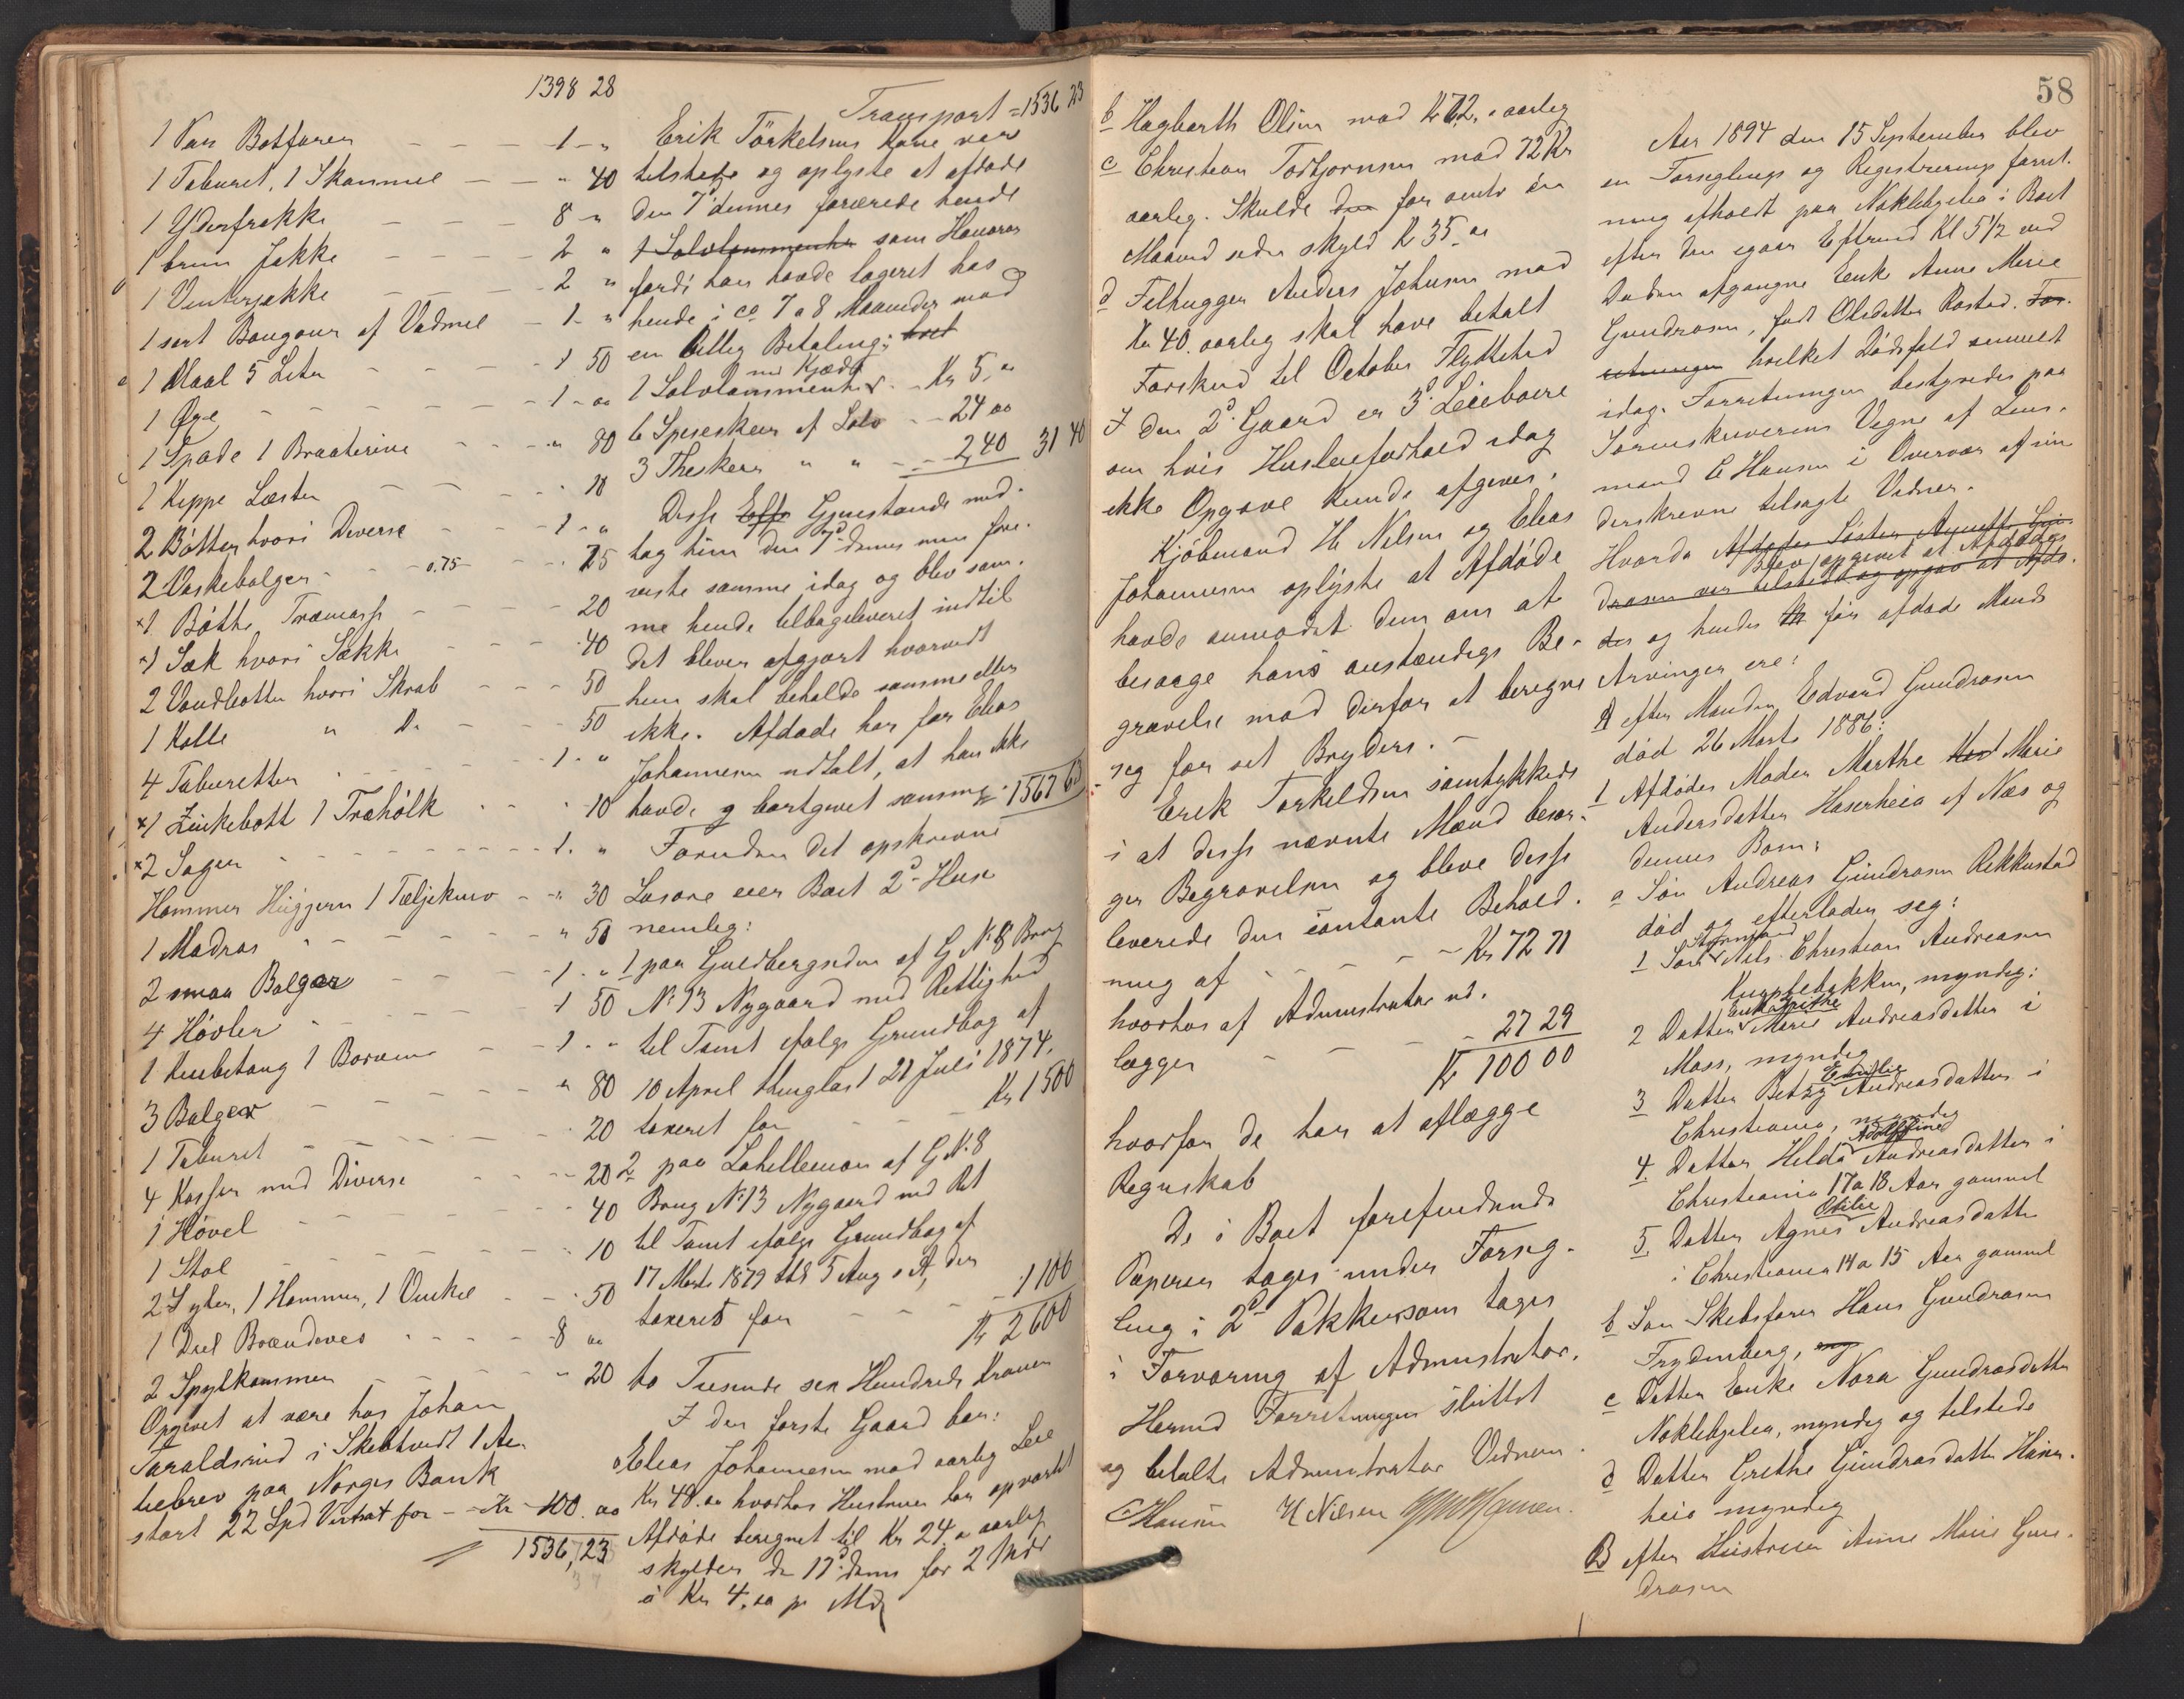 1398 28
1 Par Botforer - - - 1 - "
1 Taburet, 1 Skammel - - " 40
1 Yderfrakke - - - 8 - "
1 brun Jakke - - - 2 "
1 Vinterjakke - - - 2 "
1 sort Bougour af Vadmel - 1 - "
1 Maal 5 Liter - - - 1 50
1 Øxe - - - 1 - "
1 Spade 1 - - " 80
1 Kippe Læster - - - " 10
2 Bøtter hvori Diverse - - 1 - "
2 Vaskebalger - - 0.75 - - 75
x1 Bøtte, Træmasse - - - 20
x1 Sæk hvori Sække - - - 40
2 Vandbøtter hvori Skrab - - - 50
1 Kolle " Do - - 50
4 Taburetter - - - 1 - "
x1 Zinkebøtt 1 Træhólk - - 10
x2 Sager - - - 1. "
Hammer Huggjern 1 Tæljekniv - " 30
1 Madras - - - " 50
2 smaa Balger - - - 1. "
4 Høvler - - - 1 50
1 Knibetang 1 - - 1. "
3 Balger - - - " 80
1 Taburet - - - 20
4 Kasser med Diverse - - - 20
1 Høvel - - - 40
1 Stol - - - 10
2 Syler, 1 Hammer, 1 Vinkel - - 50
1 Del Brændeved - - - 8 "
2 Spylkommer - - - " 20
Opgivet at være hos Johan
Taraldsrud i Skibtvedt 1 Ak-
tiebrev paa Norges Bank
stort 22 Spd Vurderet for - - Kr 100. 00
1536,23
Transport = 1536 23
Erik Törkelsens Kone var
tilstede og oplyste at afdøde
den 7de dennes forærede hende
1 Sølvlommeuhr som Honorar
fordi han havde logeret hos
hende i ca 7 a 8 Maaneder mod
en billig Betaling;
med Kjæde
1 Sølvlommeuhr - Kr 5, "
6 Spiseskeer af Sølv - - 24 00
3 Theskeer " " - - 2,40 31 40
Disse Effe Gjenstande mod-
tog hun den 7de dennes men fore-
viste samme idag og blev sam-
me hende tilbageleveret indtil
det bliver afgjort hvorvidt
hun skal beholde samme eller
ikke. Afdøde har for Elias
Johannesen udtalt, at han ikke
havde g bortgivet samme. 1567 63
Foruden det opskrevne
Løsøre eier Boet 2de Huse
nemlig:
1 paa Guldbergseden af G No 8 Brug
No 13 Nygaard med Rettighed
til Tomt ifølge Grundbog af
10 April thinglæst 21 Juli 1874.
taxeret for - - Kr 1500
2 paa Lahellemoen af G No 8
Brug No 13 Nygaard med Ret
til Tomt ifølge Grundbog af
17 Marts 1879 5 Aug s A, den
taxeret for - - 1100
Kr 2600
to Tusinde sex Hundrede Kroner
I den første Gaard bor:
a Elias Johannesen mod aarlig Leie
Kr 48.00 hvorhos Hustruen har opvartet
Afdøde beregnet til Kr 24 " aarlig
skylder den 17de dennes for 2 Mdr
à Kr 4.00 pr Md
b Hagbarth Olsen mod Kr 72. " aarlig
c Christian Torbjornsen mod 72 Kr
aarlig. Skulde den for omtr en
Maaned siden skyld Kr 35.00
d Filhugger Anders Johnsen mod
Kr 40. aarlig skal have betalt
Forskud til October Flyttetid
I den 2den Gaard er 3de Leieboere
om hvis Husleieforhold idag
ikke Opgave kunde afgives.
Kjøbmand H. Nilsen og Elias
Johannesen oplyste at Afdøde
havde anmodet dem om at
besørge hans anstændige Be-
gravelse mod derfor at beregne
seg for set Bryderi. -
Erik Torkeldsen samtykkede
i at disse nævnte Mænd besør-
ger Begravelsen og bleve disse
leverede den contante Behold-
ning af - - - Kr 72 71
hvorhos af Administrator ud-
lægges - - - 27 29
Kr 100 00
hvorfor de har at aflægge
Regnskab
De i Boet forefindende
Papirer tages under Forseg-
ling i 2de Pakker som tages
i Forvaring af Administrator.
Hermed Forretningen sluttet
og betalte Administrator Vidnerne.
C Hansen H Nilsen
58
Aar 1894 den 15 September blev
en Forseglings og Registrerings forret-
ning afholdt paa Noklebyleia i Boet
efter den igaar Eftermd Kl 5 1/2 ved
Døden afgangne Enke Anne Marie
Gundrosen, født Olsdatter Rostad. For-
retningen hvilket Dødsfald anmeldt
idag. Forretningen bestyredes paa
Sorenskriverens Vegne af Lens-
mand C Hansen i Overvær af un-
derskrevne tilsagte Vidner.
Hvorda Afdødes Søster Agnette Gun-
Blev opgivet at Afdødes
drosen var tilstede og opgav at Afdø-
des og hendes før afdøde Mands
Arvinger ere:
A efter Manden Edvard Gundrosen
død 26 Marts 1886:
1 Afdødes Moder Marthe Marie
Andersdatter Haserheia af Næs og
dennes Børn:
a Søn Andreas Gundrosen Rekkustad
død og efterlader seg:
Styrmand
1 Søn Nils Christian Andreasen
Knapplebakken, myndig:
Grethe
2 Datter Marie Andreasdatter i
Moss, myndig
Emilie
3 Datter Betzy Andreasdatter i
Christiania, myndig
Adolffine
4. Datter Hilda Andreasdatter i
Christiania 17 a 18 Aar gammel
Otilie
5. Datter Agnes Andreasdatter
i Christiania 14 a 15 Aar gammel
b Søn Skibsfører Hans Gundrosen
Frydenberg, my
c Datter Enke Nora Gundrosdatter
Noklebyleia, myndig og tilstede
d Datter Grethe Gundrosdatter Haser-
heia myndig
B efter Hustruen Anne Marie Gun-
drosen